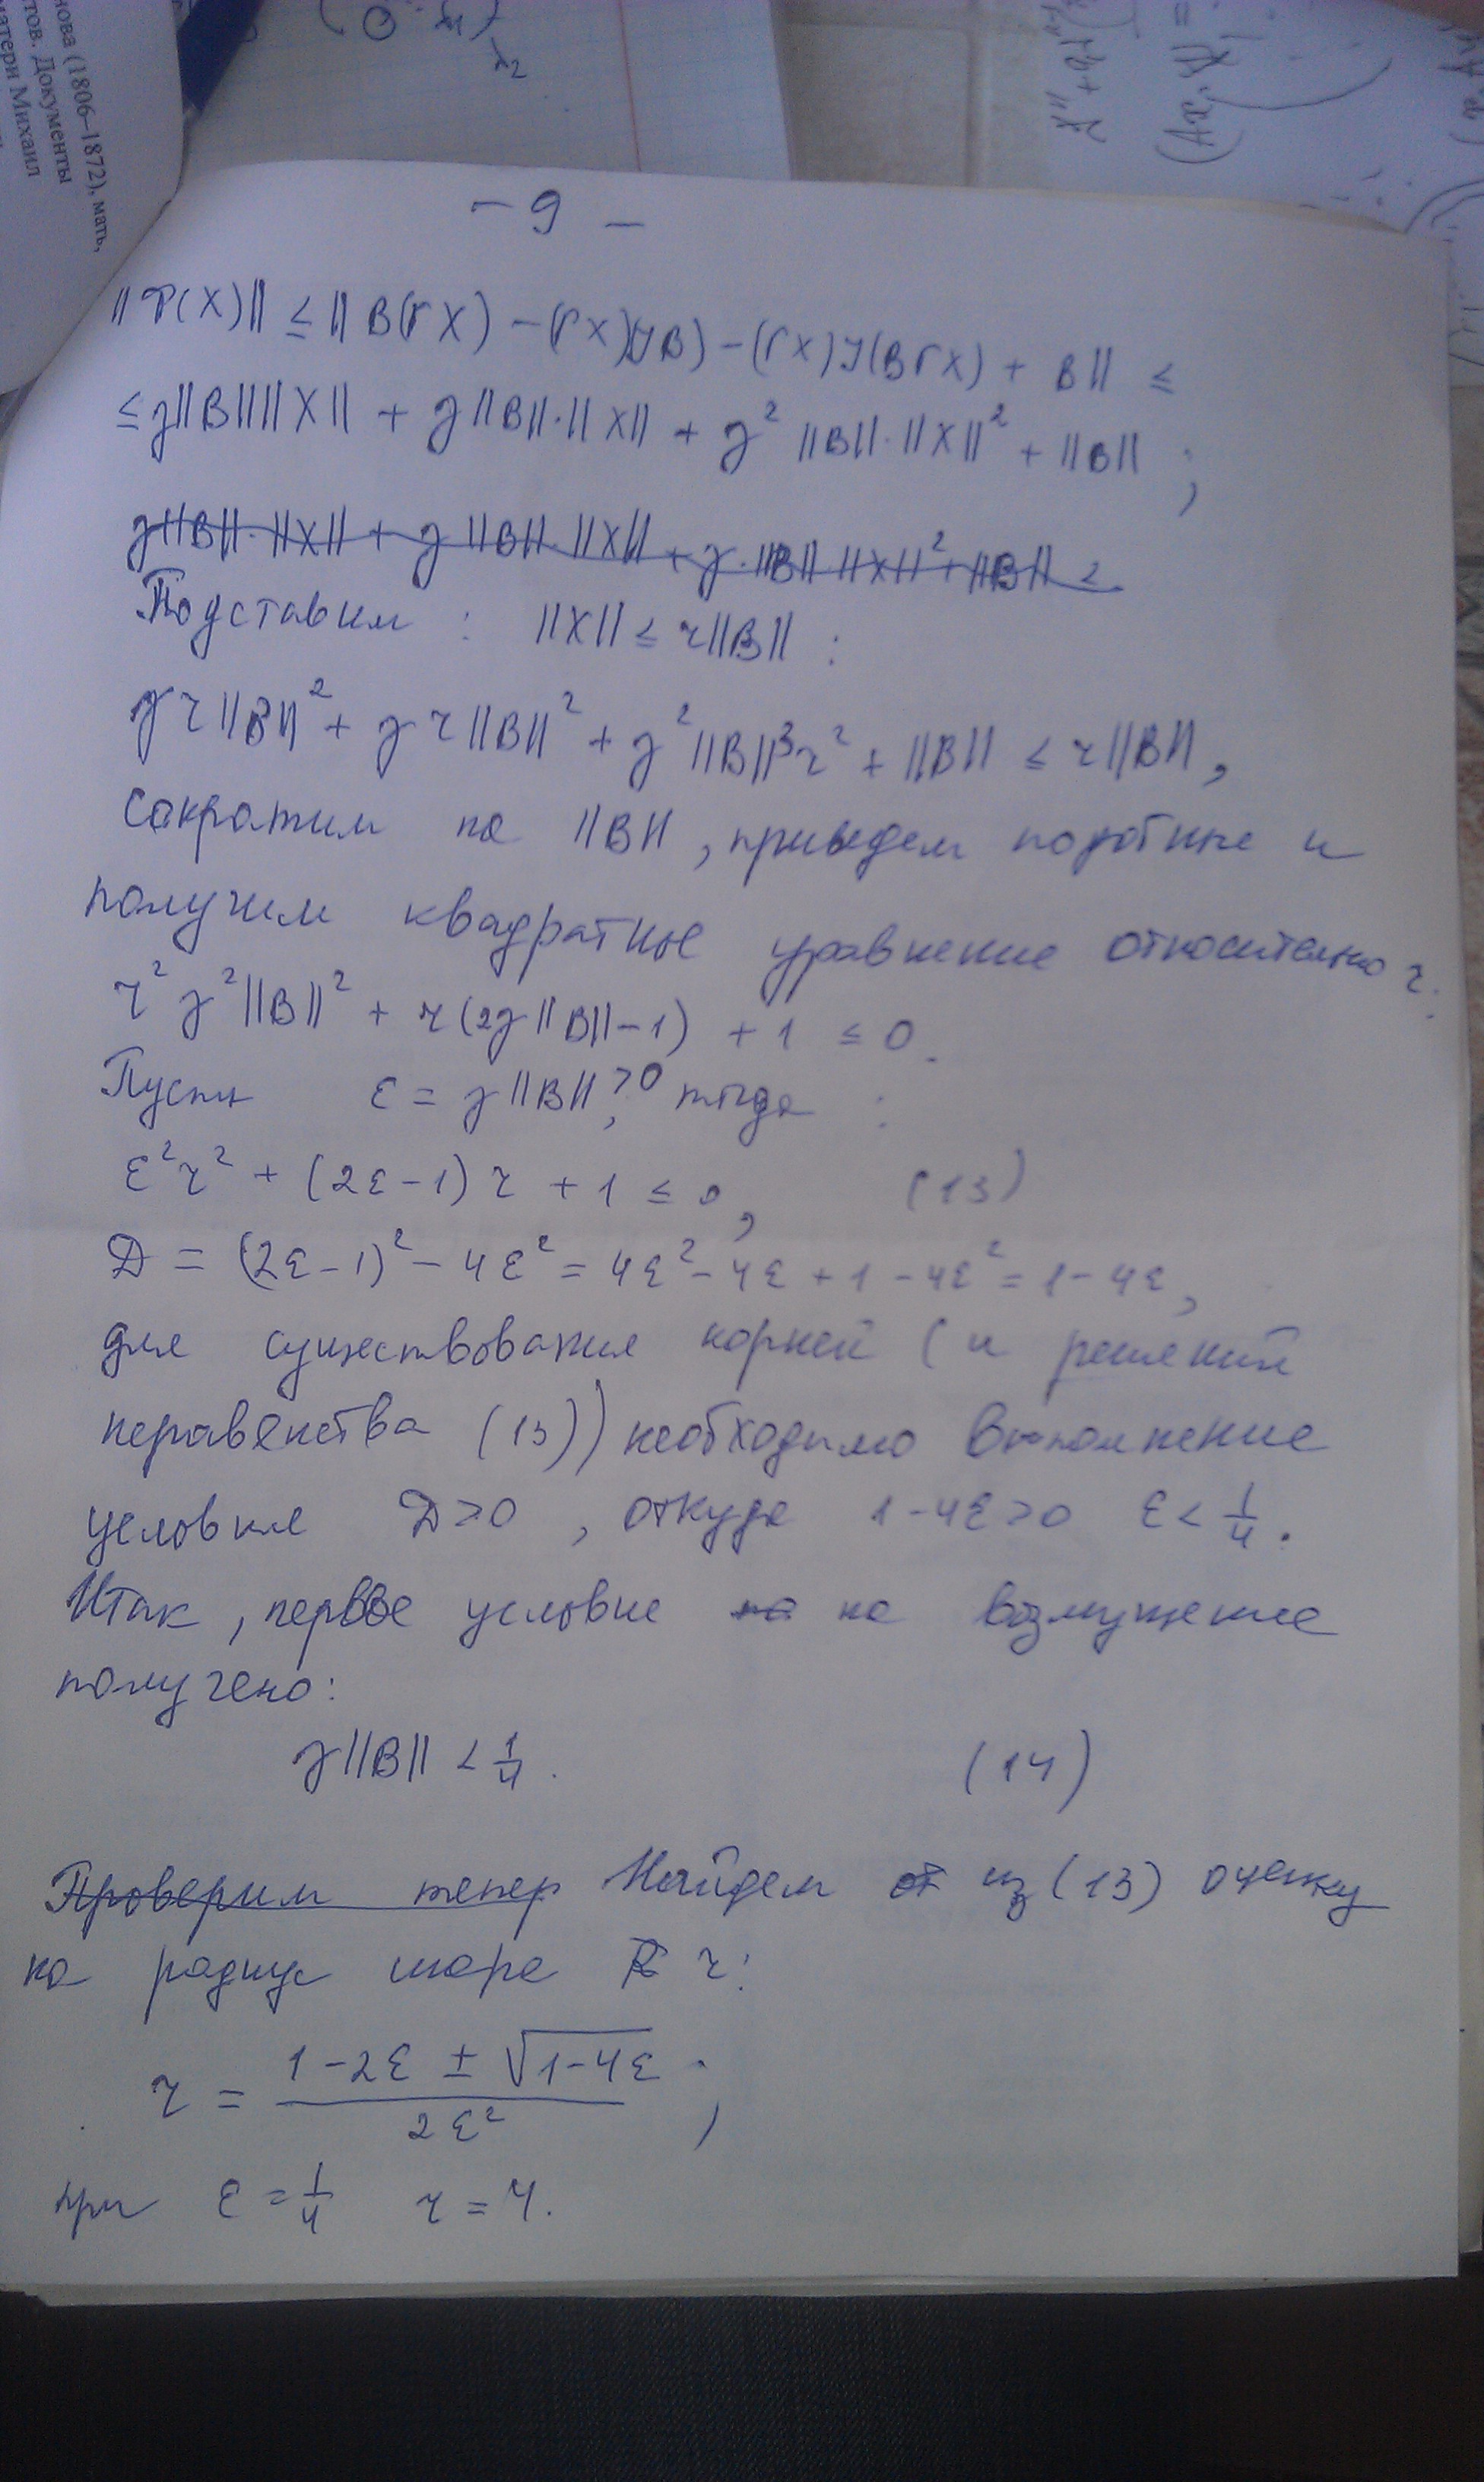 нова (1806–1872), мать,
тов. Документы
матери Михаил
x₂
(Ax, x) =
- 9 -
||Φ(X)|| ≤ ||B(ΓX) - (ΓX)(JB) - (ΓX)J(BΓX) + B|| ≤
≤ γ||B|| ||X|| + γ||B||·||X|| + γ² ||B||·||X||² + ||B|| ;
γ||B||·||X|| + γ||B||·||X|| + γ·||B||·||X||² + ||B|| ≤
Подставим : ||X|| ≤ r||B|| :
γr||B||² + γr||B||² + γ²||B||³r² + ||B|| ≤ r||B||,
сократим на ||B||, приведем подобные и
получим квадратное уравнение относительно r.
r²γ²||B||² + r(2γ||B||-1) + 1 ≤ 0.
Пусть ε = γ||B|| >0, тогда :
ε²r² + (2ε-1)r + 1 ≤ 0, (13)
D = (2ε-1)² - 4ε² = 4ε² - 4ε + 1 - 4ε² = 1 - 4ε,
для существования корней (и решений
неравенства (13)) необходимо выполнение
условия D>0, откуда 1-4ε>0 ε < 1/4.
Итак, первое условие на на возмущение
получено:
γ||B|| < 1/4. (14)
Проверим тепер Найдем от из (13) оценку
на радиус шара R r:
r = (1-2ε ± √(1-4ε)) / 2ε² ;
при ε = 1/4 r = 4.